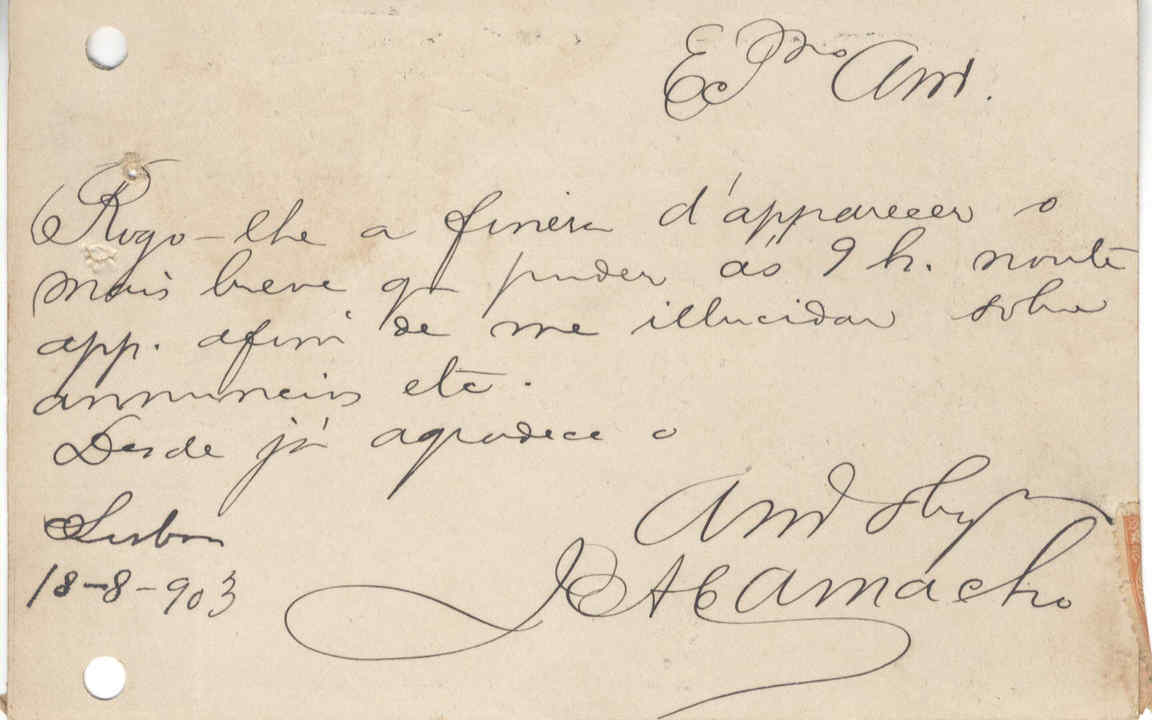 Ex.mo Am.
Rogo-lhe a fineza d'apparecer o
mais breve q puder ás 9 h. noute
app. afim de me illucidar sobre
annuncios etc.
Desde já agradece o
Am.
Lisboa
18-8-903
Camacho